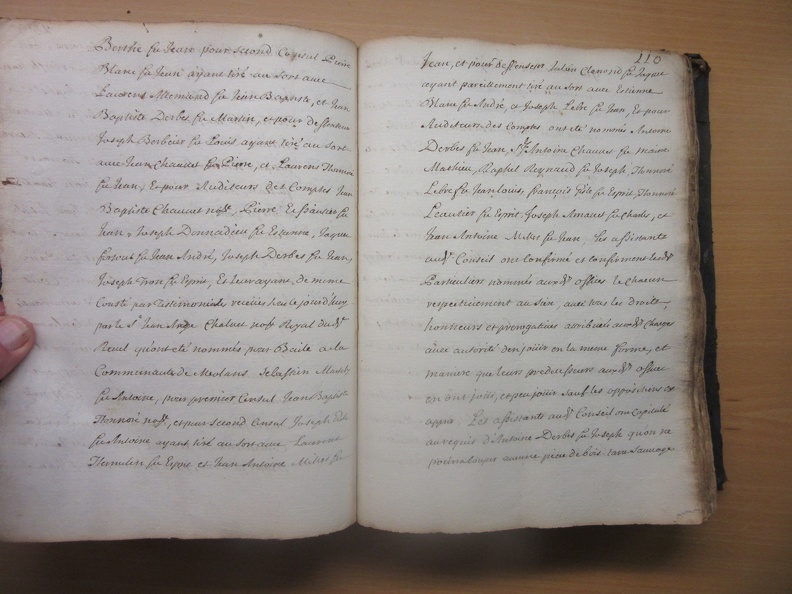 Berthe fu Jean pour second Consul Pierre
Blanc fu Jean ayant tiré au sort avec
Laurens Allemand fu Jean Baptiste, et Jean
Baptiste Derbes fu Martin, et pour deffenseur
Joseph Berbeir fu Louis, ayant tiré au sort
avec Jean Chauvet fu Pierre, et Laurens Thonnoré
fu Jean; Et pour Auditeurs des Comptes Jean
Baptiste Chauvet nore, Pierre fu
Jean, Joseph Donnadieu fu Estienne, Jaques
fu Jean André, Joseph Derbes fu Jean,
Joseph Tron fu Esprit, Et leur ayant, de meme
Consté par testimoniale receüe hau le jourd'huy
par le Sr Jean Chaluet nore Royal dud.
Reuil qu'ont été nommés pour Baile a la
Communauté de Meolans Sebastien
fu Antoine, pour premier Consul Jean Baptiste
Thonnoré nore, et pour second Consul Joseph
fu Antoine ayant tiré au sort avec Laurens
fu Esprit et Jean Antoine Mites fu
110
Jean, et pour deffenseur Julien Clemond fu Jaques
ayant pareillement tiré au sort avec Estienne
Blanc fu André, et Joseph Lebre fu Jean, Et pour
Auditeurs des Comptes ont été nommés Antoine
Derbes fu Jean, Sr Antoine Chauvet fu maitre
Mathieu, Raphel Reynaud fu Joseph Thonnoré
Lebre fu Jean Louis, françois fu Esprit, Thonnoré
Leautier fu Esprit, Joseph Arnaud fu Charles, et
Jean Antoine Mites fu Jean, Les assistants
aud. Conseil ont confirmé et confirment lesds
Particuliers nommés auxds offices le chacun
respectivement au sien, avec tous les droits,
honneurs et prerogatives attribuées auxds Charges
avec autorité d'en joüir en la meme forme, et
maniere que leurs predecesseurs auxds offices
en ont joüi, et peu joüir sauf les oppositions et
appus. Les assistants aud. Conseil ont Capitulé
au requis d'Antoine Derbes fu Joseph qu'on ne
pourra couper aucune piece de bois tant sauvage